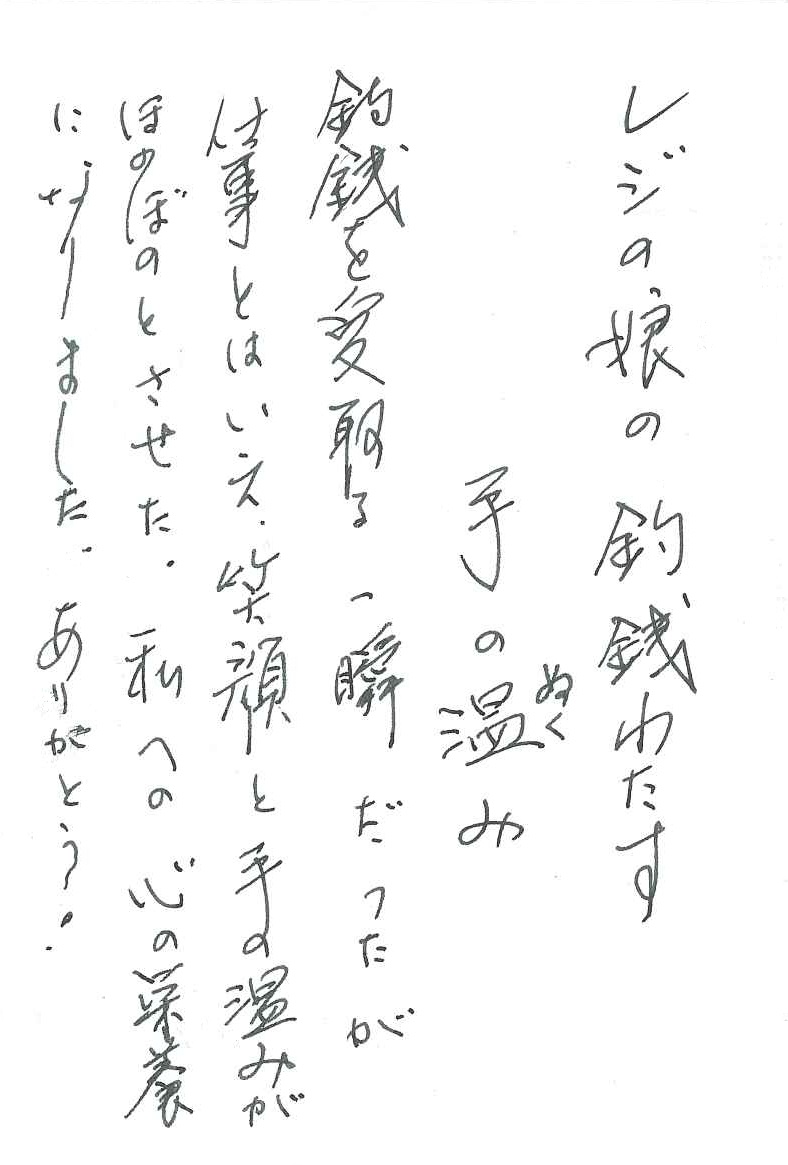 レジの娘の釣銭わたす
手の温み
ぬく
釣銭を受取る一瞬だったが
仕事とはいえ、笑顔と手の温みが
ほのぼのとさせた。私への心の栄養
になりました。ありがとう。